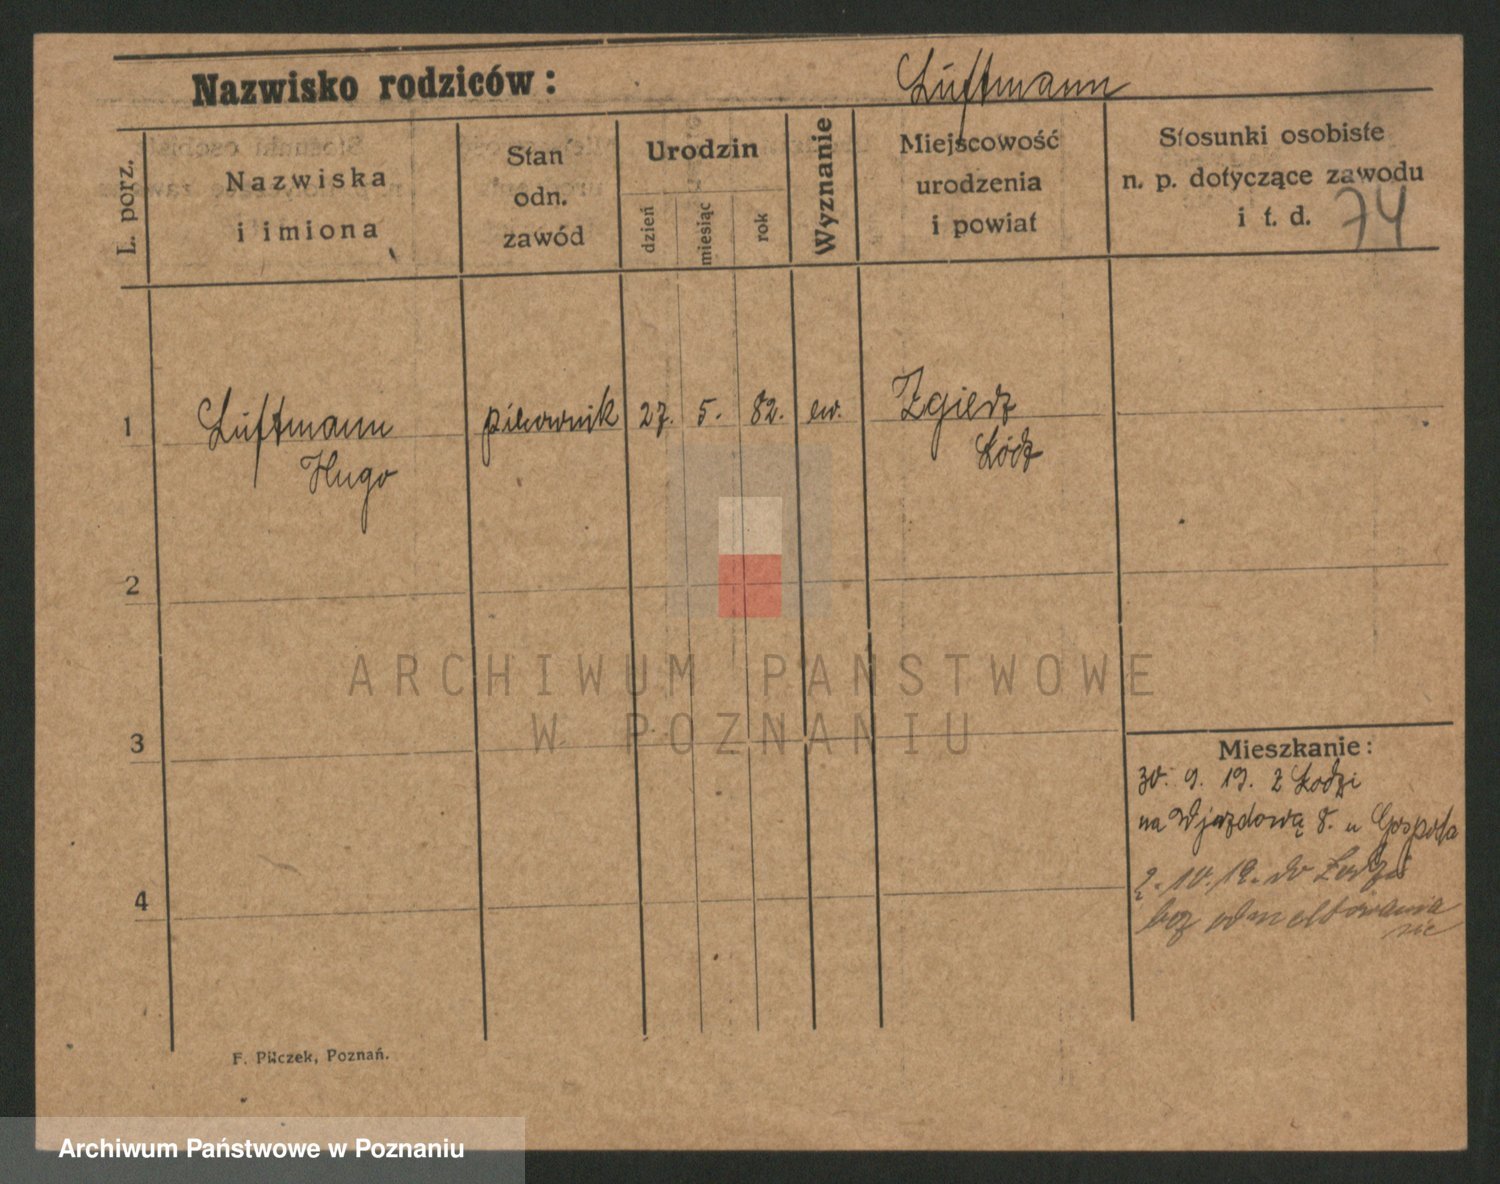 Nazwisko rodziców: Luftmann
L. porz.
Nazwiska
i imiona
Stan
odn.
zawód
Urodzin
dzień
miesiąc
rok
Wyznanie
Miejscowość
urodzenia
i powiat
Stosunki osobiste
n. p. dotyczące zawodu
i t. d.
74
1 Luftmann piwownik 27. 5. 82. ew. Zgierz
Hugo Łódź
2
ARCHIWUM PAŃSTWOWE
W POZNANIU
3
Mieszkanie:
30. 9. 19. z Łodzi
na Wjazdową 8. u Gospoda
4
2. 10. 19. do Łodzi
bez odmeldowania
sie
F. Pilczek, Poznań.
Archiwum Państwowe w Poznaniu